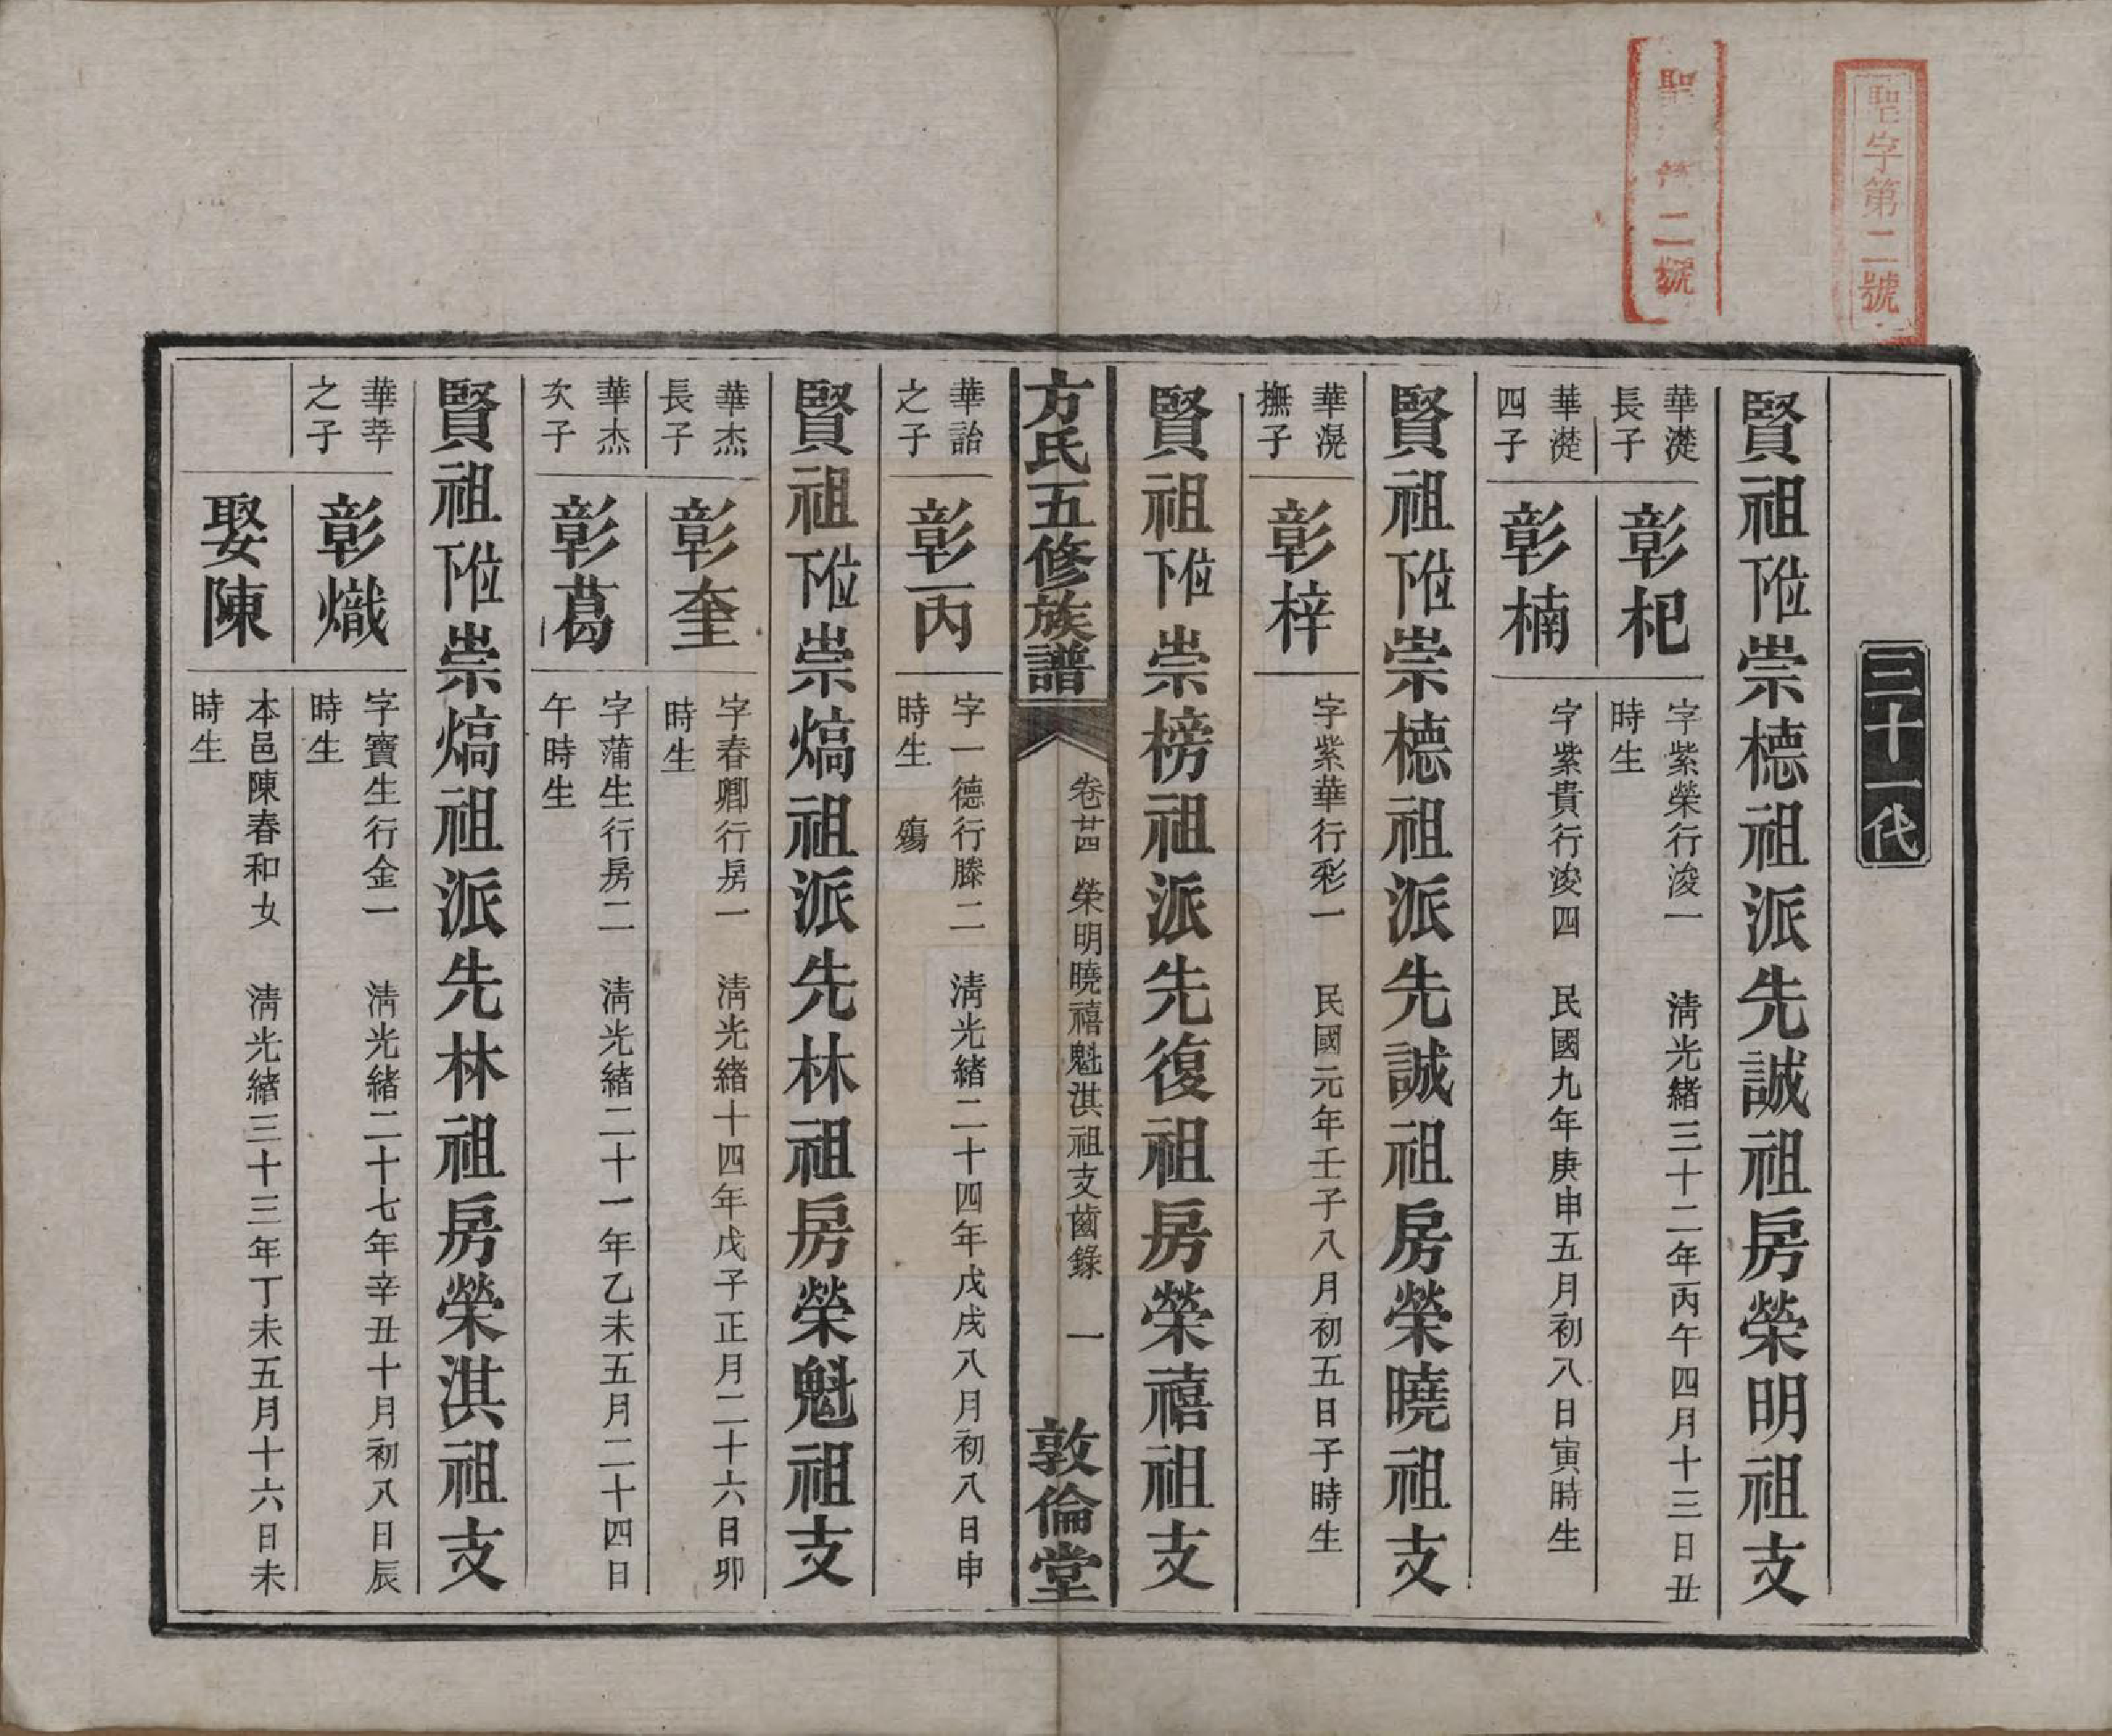 聖字第二號
聖 第二號
三十一代
賢祖下位崇樬祖派先誠祖房榮明祖支
華濋長子 彰杞 字紫榮行浚一 清光緒三十二年丙午四月十三日丑時生
華濋四子 彰楠 字紫貴行浚四 民國九年庚申五月初八日寅時生
賢祖下位崇樬祖派先誠祖房榮曉祖支
華滉撫子 彰梓 字紫華行彩一 民國元年壬子八月初五日子時生
賢祖下位崇榜祖派先復祖房榮禧祖支
方氏五修族譜 卷廿四 榮明曉禧魁淇祖支齒錄 一 敦倫堂
華詒之子 彰丙 字一德行滕二 清光緒二十四年戊戌八月初八日申時生 殤
賢祖下位崇熇祖派先林祖房榮魁祖支
華杰長子 彰奎 字春卿行房一 清光緒十四年戊子正月二十六日卯時生
華杰次子 彰葛 字蒲生行房二 清光緒二十一年乙未五月二十四日午時生
賢祖下位崇熇祖派先林祖房榮淇祖支
華莘之子 彰熾 字寶生行金一 清光緒二十七年辛丑十月初八日辰時生
娶陳 本邑陳春和女 清光緒三十三年丁未五月十六日未時生